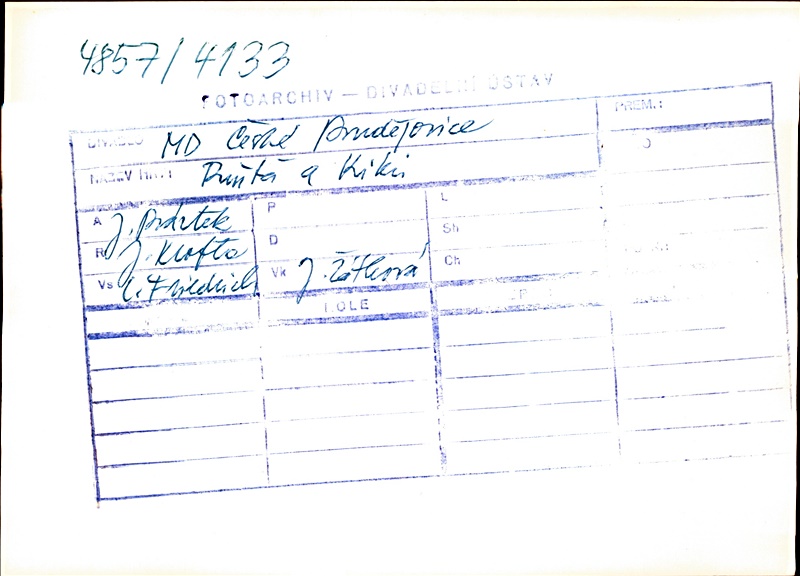 4857/4133
FOTOARCHIV — DIVADELNÍ ÚSTAV
DIVADLO MD České Budějovice PREM.:
NÁZEV HRY: a Kiki
A J. P L
R J. Krofta D Sh
Vs Vk J. Žátková Ch
ROLE